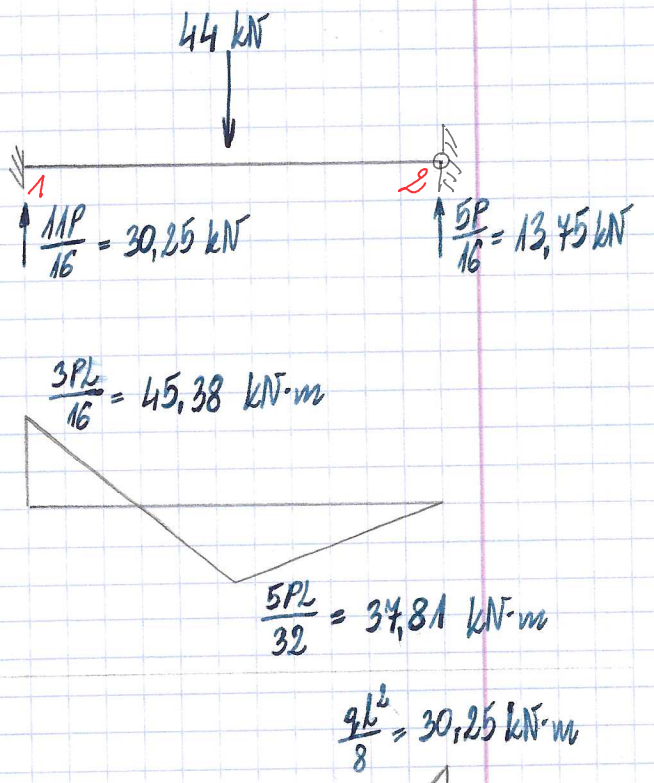 44 kN
1 2
11P/16 = 30,25 kN
5P/16 = 13,75 kN
3PL/16 = 45,38 kN·m
5PL/32 = 37,81 kN·m
qL²/8 = 30,25 kN·m